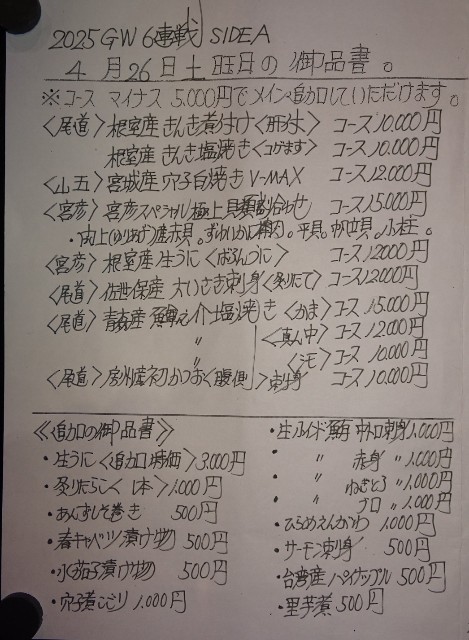 2025 GW 6連戦 SIDE A
4月26日土旺日の御品書。
※コース マイナス 5.000円でメイン追加していただけます。
〈尾道〉根室産きんき煮付け〈形付〉 コース10.000円
根室産 きんき塩焼き〈コがます〉 コース10.000円
〈山五〉宮城産穴子白焼き V-MAX コース12.000円
〈宮彦〉宮彦スペシャル極上貝類盛り合わせ コース15.000円
・内上(ゆりあげ)産赤貝。ずわいがに棒肉。平貝。帆立貝。小柱。
〈宮彦〉根室産生うに〈ばふんうに〉 コース12000円
〈尾道〉佐世保産 大いさき刺身〈炙りたて〉 コース12.000円
〈尾道〉青森産 鱒之介塩焼き〈かま〉コース15.000円
〃 〈真ん中〉コース12.000円
〃 コース10.000円
〈尾道〉房州産初かつお〈腹側〉刺身 コース10.000円
《追加の御品書》
・生うに〈追加特価〉3.000円
・炙りたらこ〈1本〉1.000円
・あんずしそ巻き 500円
・春キャベツ漬け物 500円
・水茄子漬け物 500円
・穴子煮こごり 1.000円
・生インド鮪 中トロ刺身1.000円
・〃 赤身 〃 1.000円
・〃 ねぎとろ 〃 1.000円
・〃 ブロ 〃 1.000円
・ひらめえんがわ 1.000円
・サーモン刺身 500円
・台湾産パイナップル 500円
・里芋煮 500円